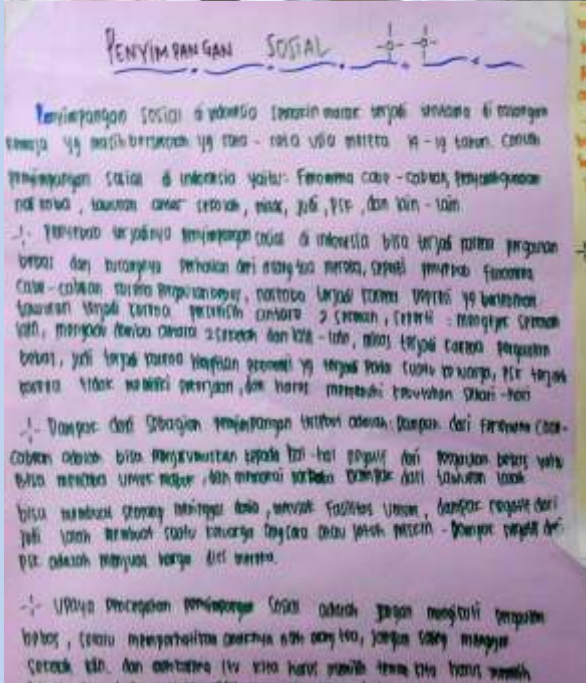 PENYIMPANGAN SOSIAL
Penyimpangan sosial di indonesia semakin marak terjadi terutama di kalangan
remaja yg masih bersekolah yg rata - rata usia mereka 14 - 19 tahun. Contoh
penyimpangan sosial di indonesia yaitu: Fenomena cabe - cabean, Penyalahgunaan
narkoba, tawuran antar sekolah, miras, judi, PSK, dan lain - lain.
Penyebab terjadinya penyimpangan sosial di indonesia bisa terjadi karena pergaulan
bebas dan kurangnya perhatian dari orang tua mereka, seperti penyebab fenomena
cabe - cabean karena pergaulan bebas, narkoba terjadi karena depresi yg
tawuran terjadi karena perselisih antara 2 sekolah, seperti : mengejek sekolah
lain, antara 2 sekolah dan lain - lain, miras terjadi karena pergaulan
bebas, judi terjadi karena ekonomi yg terjadi pada suatu keluarga, PSK terjadi
karena tidak memiliki pekerjaan, dan harus memenuhi kebutuhan sehari - hari
Dampak dari sebagian penyimpangan tersebut adalah: Dampak dari fenomena cabe -
cabean adalah bisa kepada hal - hal negatif dari pergaulan bebas yaitu
bisa , dan narkoba Dampak dari tawuran ialah
bisa membuat seorang meninggal dunia, merusak fasilitas umum, dampak negatif dari
judi ialah membuat suatu keluarga atau jatuh miskin - Dampak negatif dari
PSK adalah menjual harga diri mereka.
Upaya pencegahan penyimpangan sosial adalah jangan mengikuti pergaulan
bebas, selalu memperhatikan anaknya oleh orang tua, jangan saling mengejek
sekolah lain. dan itu kita harus memilih teman kita harus memilih